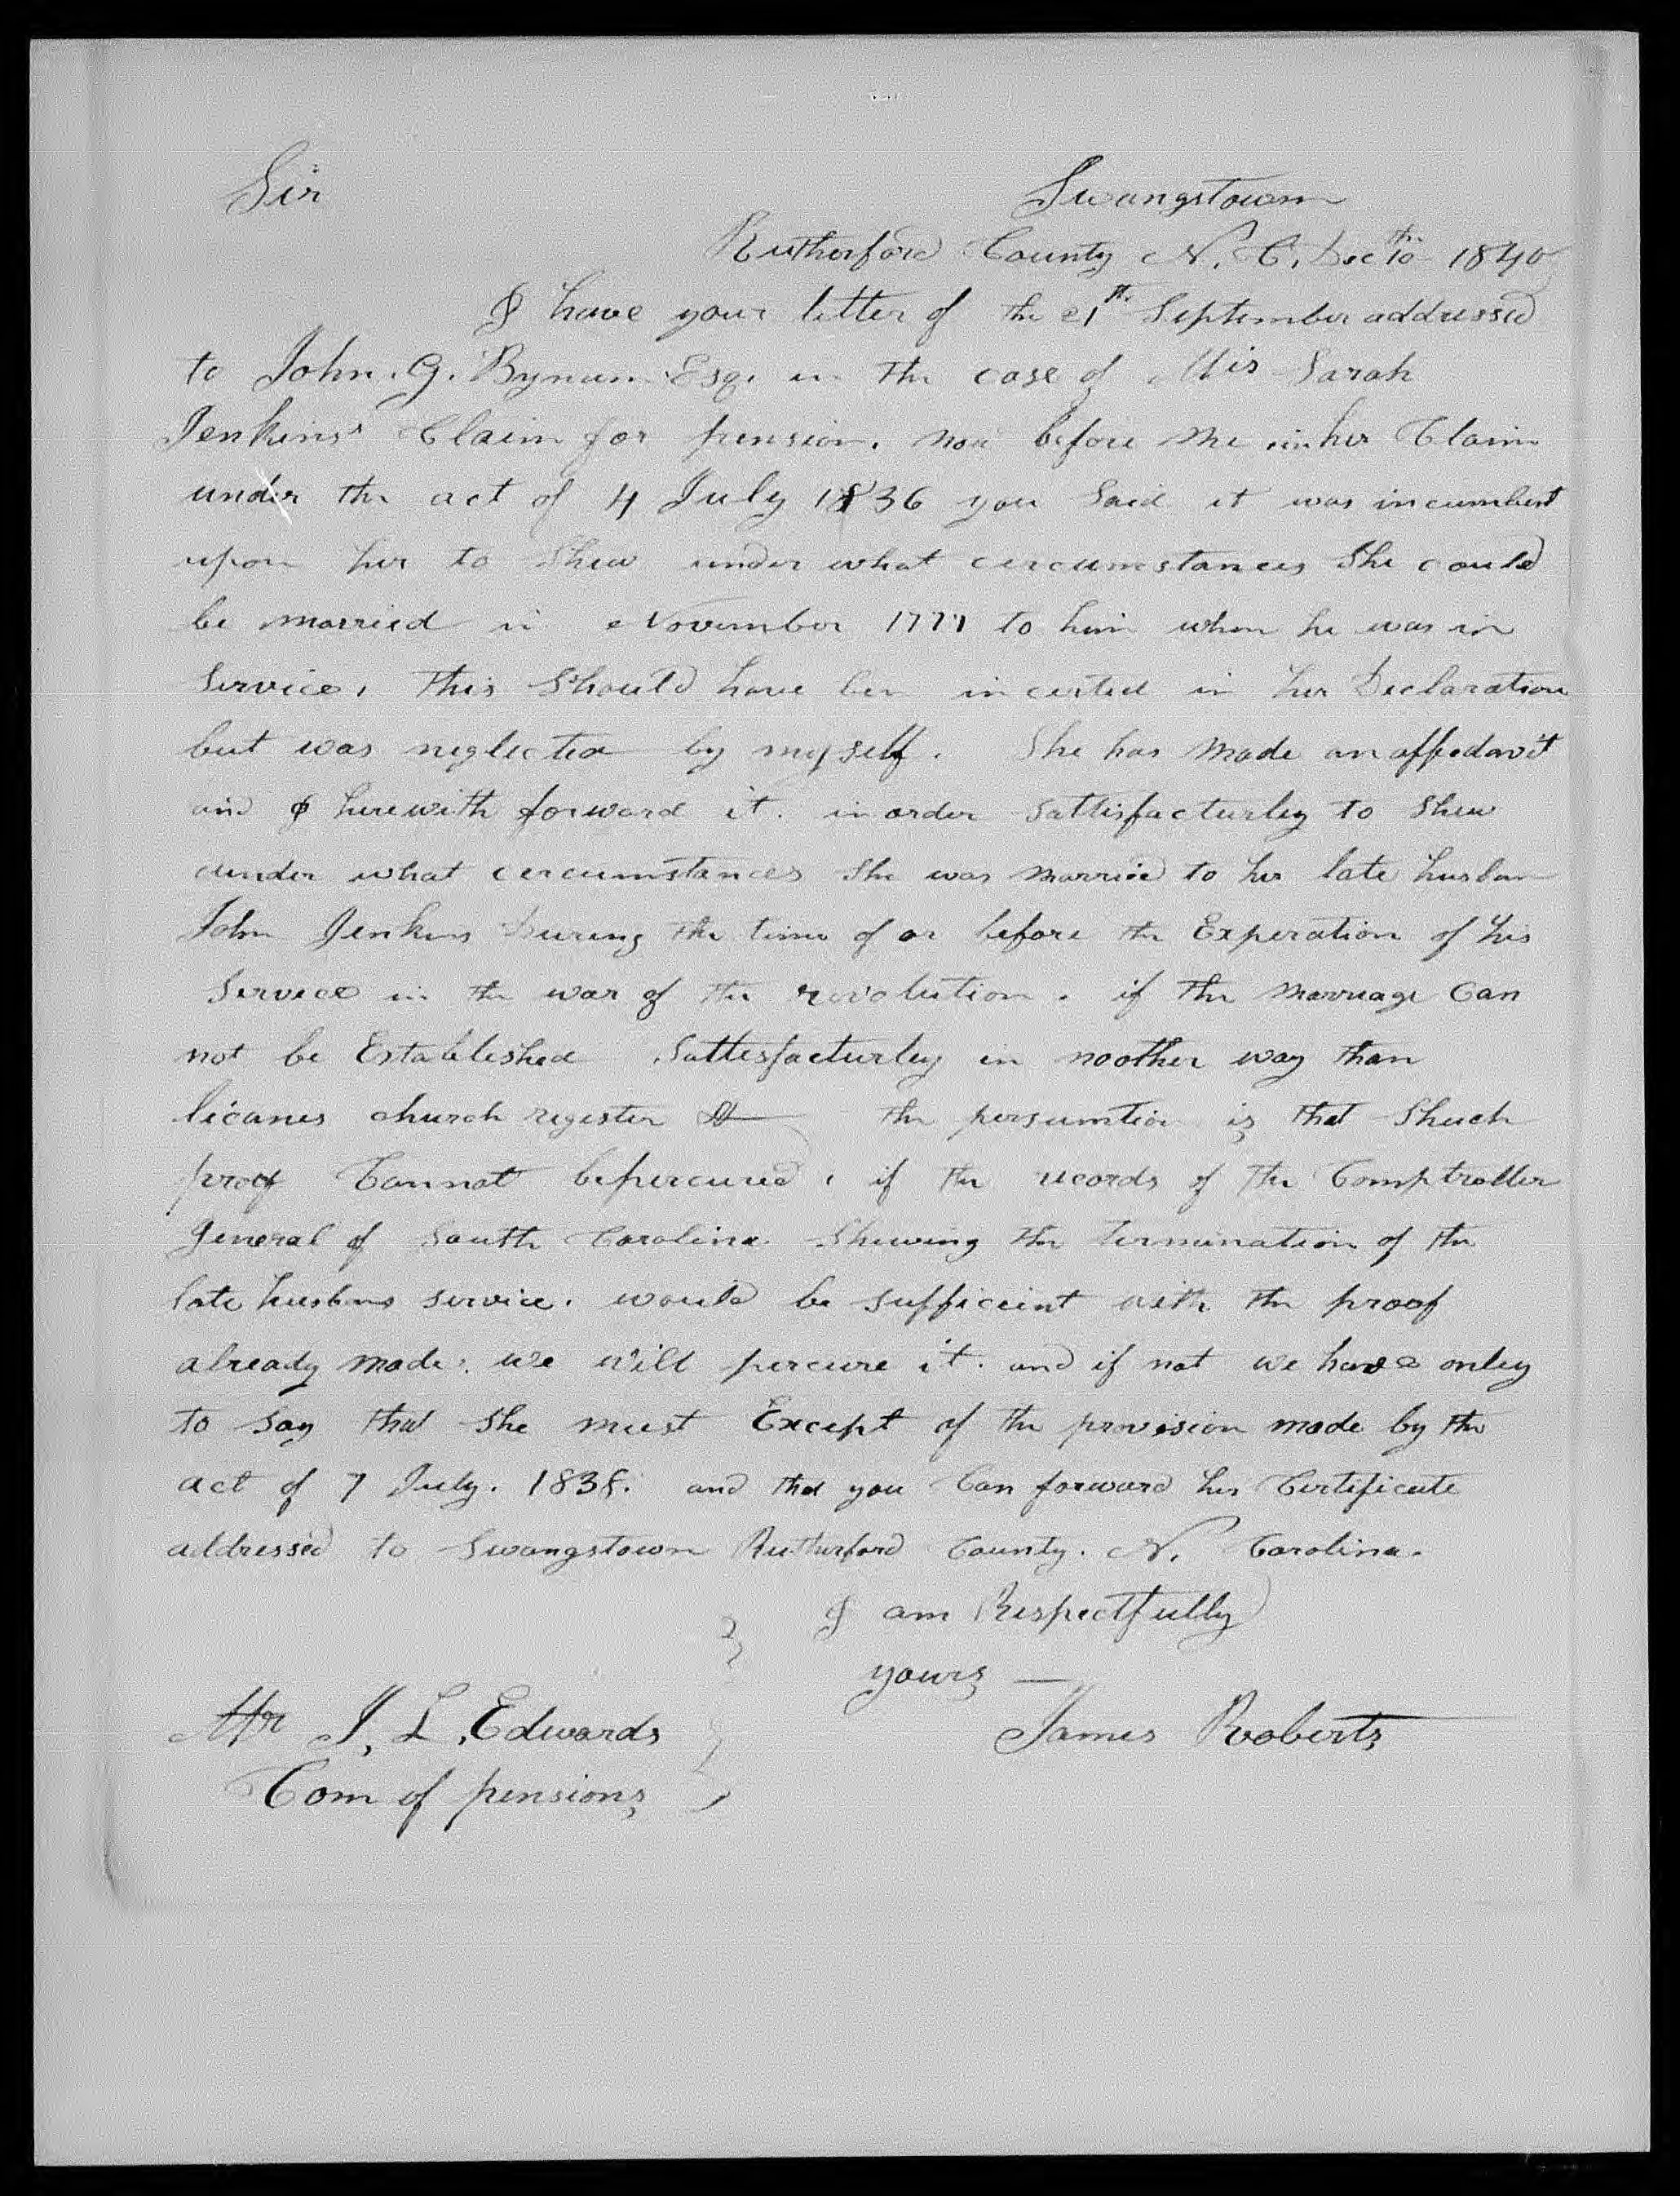 Sir Swangstown
Rutherford County N. C. Dec 10th 1840
I have your letter of the 21th September addressed
to John. G. Bynum Esq. in the case of Mis Sarah
Jenkins' Claim for pension. now before me in her Claim
under the act of 4 July 1836 you Said it was incumbent
upon her to Shew under what circumstances She could
be married in November 1777 to him when he was in
Service, this Should have ben incerted in her Declaration
but was neglected by myself. She has Made an affedavit
and I herewith forward it. in order Sattisfacturley to Shew
under what cercumstances She was Married to her late husban
John Jenkins During the time of or before the Experation of his
Service in the war of the revolution. if the Marriage Can
not be Established Sattesfacturley in noother way than
licanes church register & the persumtion is that Shuch
proof Cannot bepercured, if the records of the Comptroller
General of South Carolina Shewing the Termination of the
late husbans service. would be sufficeint with the proof
already made. we will percure it. and if not we have onley
to Say that She must Except of the provision made by the
act of 7 July. 1838. and that you Can forward her Certificate
addressed to Swangstown Rutherford County. N. Carolina.
I am Respectfully
yours —
Mr J. L. Edwards James Roberts
Com of pensions